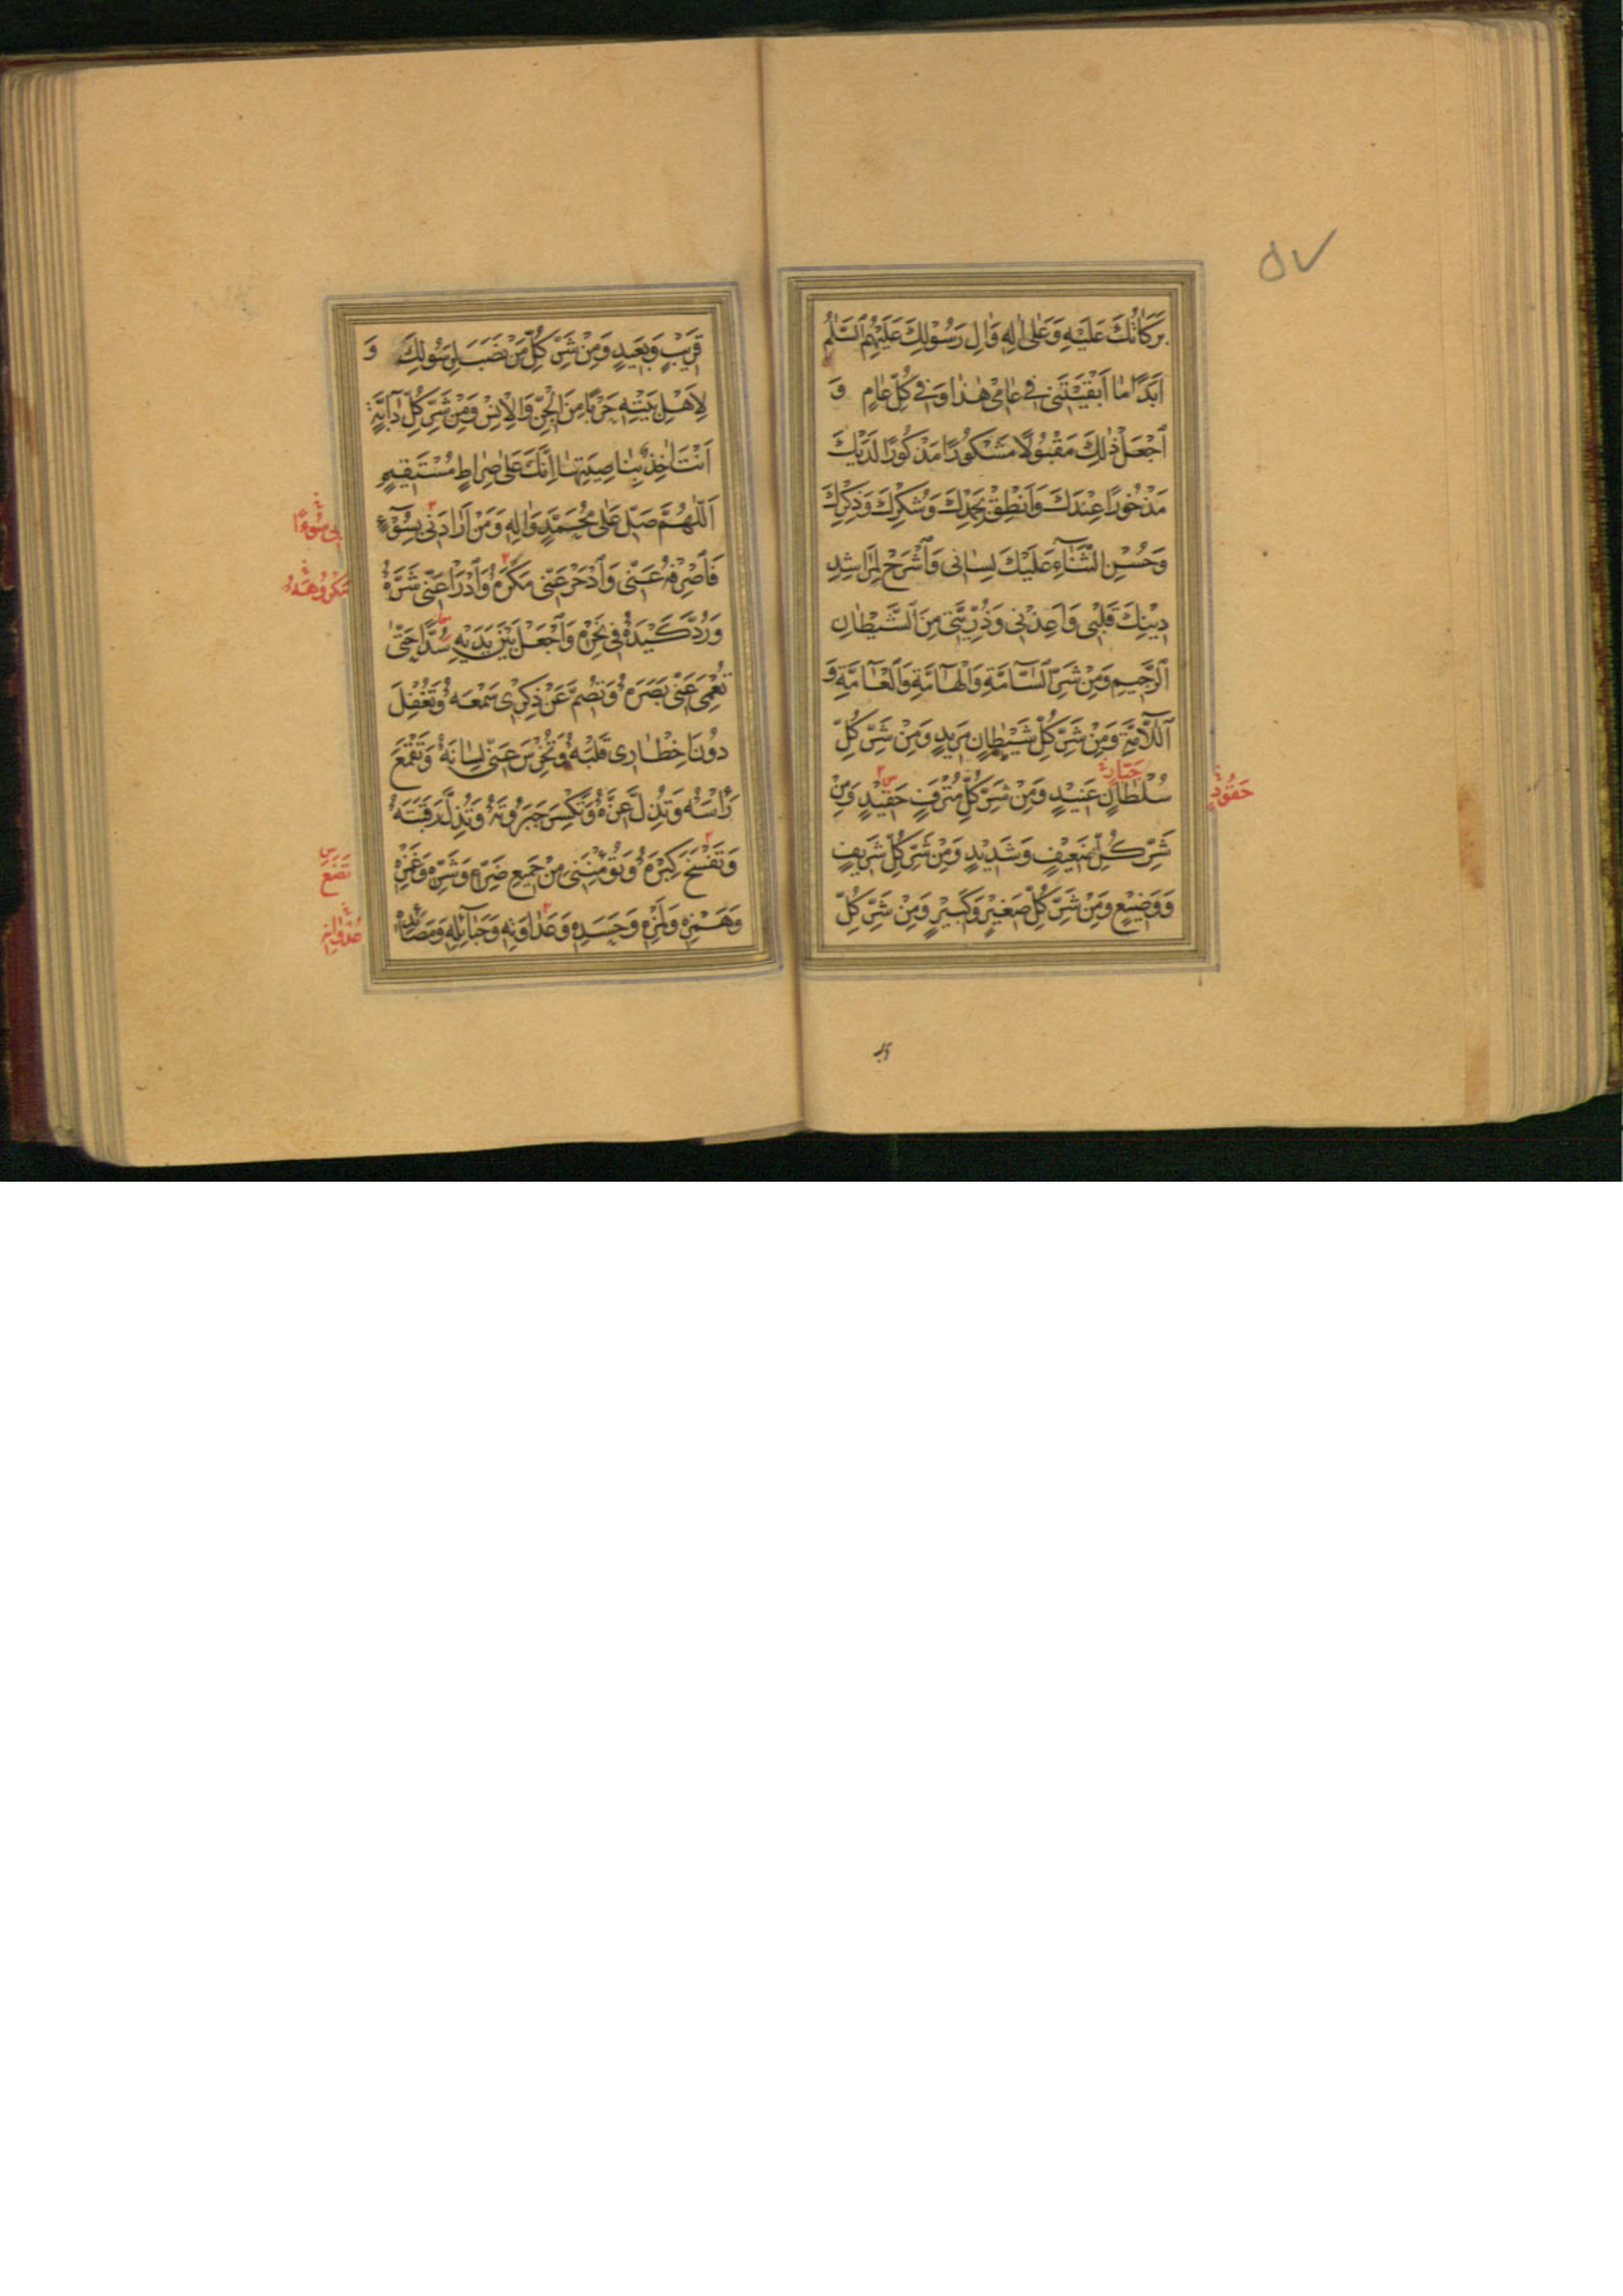 ۵۷
بَرَكَاتُكَ عَلَيْهِ وَعَلٰى اٰلِهِ وَاٰلِ رَسُوْلِكَ عَلَيْهِمُ السَّلٰمُ
اَبَدًا مٰا اَبْقَيْتَنِى فِى عٰامِى هٰذٰا وَفِى كُلِّ عٰامٍ وَ
اجْعَلْ ذٰلِكَ مَقْبُوْلًا مَشْكُوْرًا مَذْكُوْرًا لَدَيْكَ
مَذْخُوْرًا عِنْدَكَ وَاَنْطِقْ بِحَمْدِكَ وَشُكْرِكَ وَذِكْرِكَ
وَحُسْنِ الثَّنٰاۤءِ عَلَيْكَ لِسٰانِى وَاشْرَحْ لِمَرٰاشِدِ
دِيْنِكَ قَلْبِى وَاَعِذْنِى وَذُرِّيَّتِى مِنَ الشَّيْطٰانِ
الرَّجِيْمِ وَمِنْ شَرِّ السّٰاۤمَّةِ وَالْهٰاۤمَّةِ وَالْعٰاۤمَّةِ وَ
اللّٰاۤمَّةِ وَمِنْ شَرِّ كُلِّ شَيْطٰانٍ مَرِيْدٍ وَمِنْ شَرِّ كُلِّ
جَبّٰارٍ
سُلْطٰانٍ عَنِيْدٍ وَمِنْ شَرِّ كُلِّ مُتْرَفٍ حَقِيْدٍ وَمِنْ
حَقُوْدٍ
شَرِّ كُلِّ ضَعِيْفٍ وَشَدِيْدٍ وَمِنْ شَرِّ كُلِّ شَرِيْفٍ
وَوَضِيْعٍ وَمِنْ شَرِّ كُلِّ صَغِيْرٍ وَكَبِيْرٍ وَمِنْ شَرِّ كُلِّ
قَرِيْبٍ وَبَعِيْدٍ وَمِنْ شَرِّ كُلِّ مَنْ نَصَبَ لِرَسُوْلِكَ وَ
لِاَهْلِ بَيْتِهِ حَرْبًا مِنَ الْجِنِّ وَالْاِنْسِ وَمِنْ شَرِّ كُلِّ دٰاۤبَّةٍ
اَنْتَ اٰخِذٌ بِنٰاصِيَتِهٰا اِنَّكَ عَلٰى صِرٰاطٍ مُسْتَقِيْمٍ
اَللّٰهُمَّ صَلِّ عَلٰى مُحَمَّدٍ وَاٰلِهِ وَمَنْ اَرٰادَنِى بِسُوْۤءٍ
بِى سُوْءًا
فَاصْرِفْهُ عَنِّى وَادْحَرْ عَنِّى مَكْرَهُ وَادْرَأْ عَنِّى شَرَّهُ
مَكْرُوْهَهُ
وَرُدَّ كَيْدَهُ فِى نَحْرِهِ وَاجْعَلْ بَيْنَ يَدَيْهِ سُدًّا حَتّٰى
تُعْمِىَ عَنِّى بَصَرَهُ وَتُصِمَّ عَنْ ذِكْرِى سَمْعَهُ وَتُقْفِلَ
دُوْنَ اِخْطٰارِى قَلْبَهُ وَتُخْرِسَ عَنِّى لِسٰانَهُ وَتَقْمَعَ
رَاْسَهُ وَتُذِلَّ عِزَّهُ وَتَكْسِرَ جَبَرُوْتَهُ وَتُذِلَّ رَقَبَتَهُ
وَتَفْسَخَ كِبْرَهُ وَتُؤْمِنَنِى مِنْ جَمِيْعِ ضَرِّهِ وَشَرِّهِ وَغَمْزِهِ
وَهَمْزِهِ وَلَمْزِهِ وَحَسَدِهِ وَعَدٰاوَتِهِ وَحَبٰاۤئِلِهِ وَمَصٰاۤئِدِهِ
عُدْوٰانِهِ